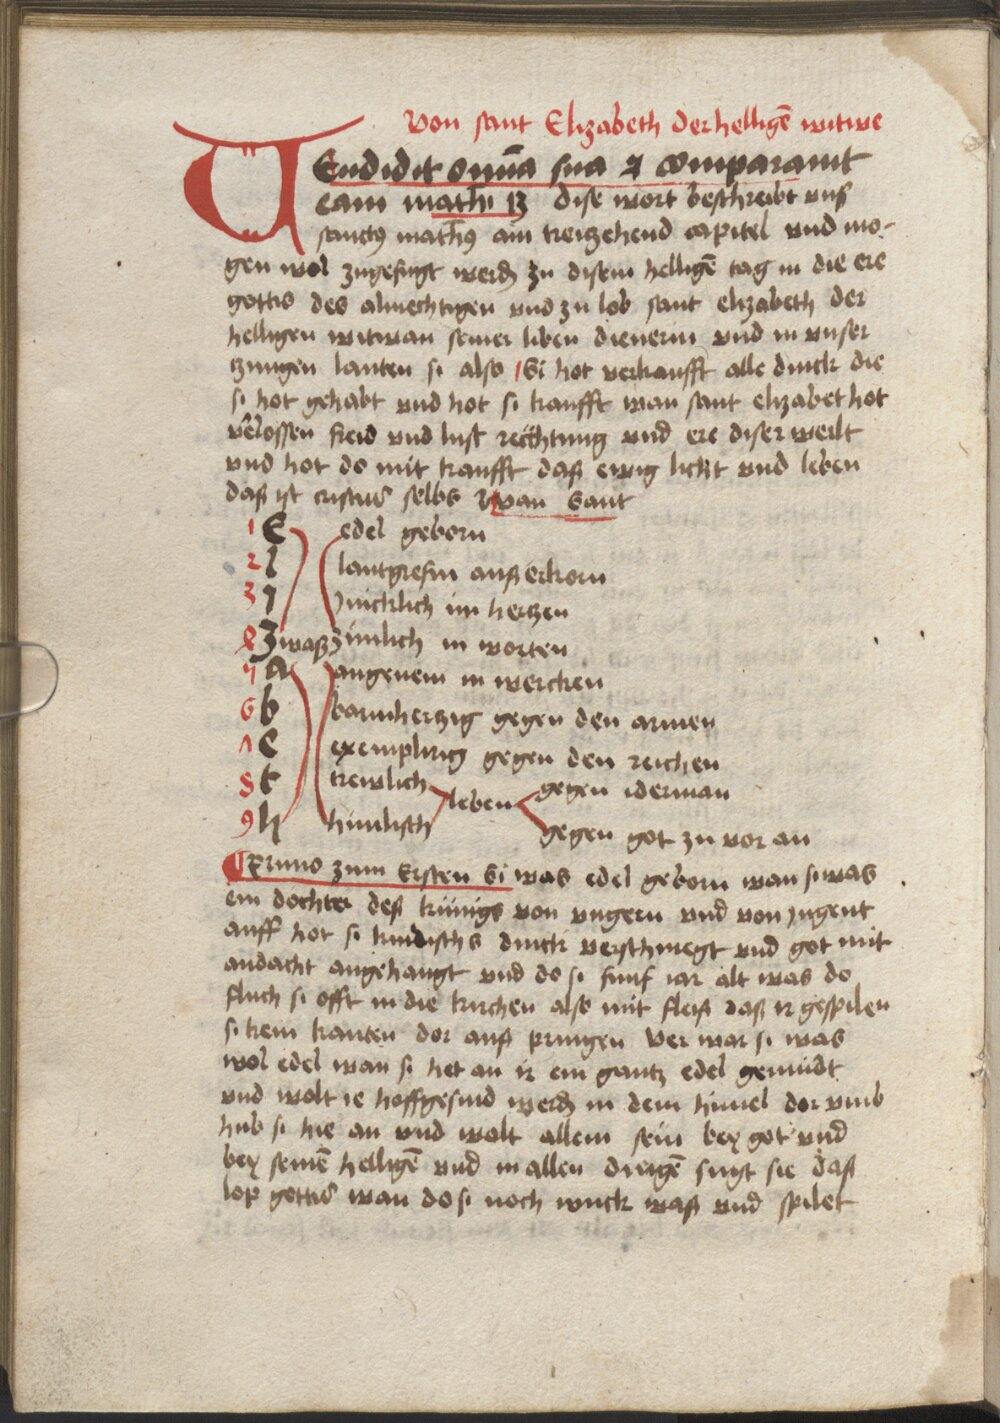 Von sant Elizabeth der helligē witwe
VEndidit om̄ia sua et comparauit
eam mathei 13 dise wort beschreibt vnß
sanctus matheus am treitzehend capitel vnd mo-
gen wol zugefugt werdē zu disem helligē tag in die ere
gottis des almechtigen vnd zu lob sant elizabeth der
helligen witwan seiner liben dienerin vnd in vnser
tzungen lauten si also Si hot verkaufft alle dinck die
si hot gehabt vnd hot si kaufft wan sant elizabet hot
v̄lossen freid vnd lust reichtung vnd ere diser werlt
vnd hot do mit kaufft daß ewig licht vnd leben
daß ist cristus selbs Wan Sant
1 E edel geborn
2 l lantgrefin auß erkorn
3 i inicklich im hertzen
4 Z waß zimlich in worten
5 A angenem in wercken
6 b barmherzig gegen den armen
7 E exemplirig gegen den reichen
8 t treiwlich leben gegen iderman
9 h himlisch gegen got zu vor an
Primo zum Ersten Si was edel geborn wan si was
ein dochter deß künigs von vngern vnd von jugent
auff hot si kindischs dinck verschmegt vnd got mit
andacht angehangt vnd do si funf iar alt was do
fluch si offt in die kirchen also mit fleiß daß ir gespilen
si kem kauten dor auß pringen Ver war si was
wol edel wan si het an ir ein gantz edel gemüdt
vnd wolt ie hoffgesind werdē in dem himel dor vmb
hub si hie an vnd wolt allein sein bey got vnd
bey seinē helligē vnd in allen dingē sugt sie daß
lop gottis wan do si noch iunck waß vnd spilet